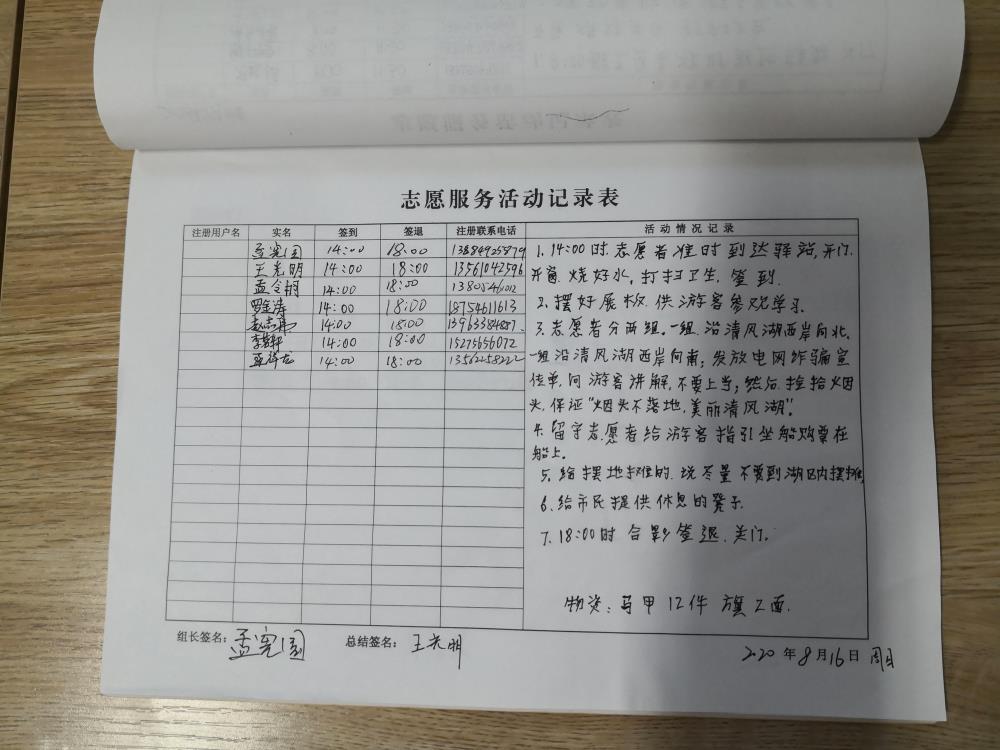 志愿服务活动记录表
注册用户名 实名 签到 签退 注册联系电话 活动情况记录
孟宪国 14:00 18:00
王光明 14:00 18:00 13561042596
孟令桐 14:00 18:00
罗金涛 14:00 18:00 18754611613
14:00 18:00
14:00 18:00 15275656072
孟祥龙 14:00 18:00 13562258222
1. 14:00时志愿者准时到达驿站,开门.
开窗,烧好水,打扫卫生,签到.
2. 摆好展板,供游客参观学习.
3. 志愿者分两组.一组沿清风湖西岸向北.
一组沿清风湖西岸向南;发放电网诈骗宣
传单,向游客讲解,不要上当;然后,捡拾烟
头,保证“烟头不落地,美丽清风湖”.
4. 留守志愿者给游客指引坐船购票在
船上.
5. 给摆地摊的说尽量不要到湖区内摆摊
6. 给市民提供休息的凳子.
7. 18:00时合影签退,关门.
物资:马甲12件 旗2面.
组长签名:孟宪国 总结签名:王光明
2020年8月16日 周日